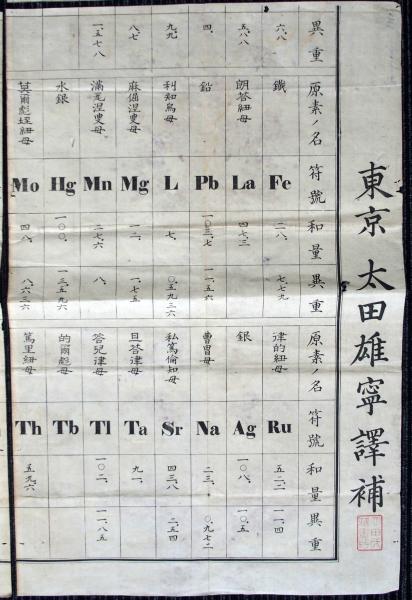 東京 太田雄寧譯補
異重 原素ノ名 符號 和量 異重 原素ノ名 符號 和量 異重
六、八 鐵 Fe 二八、 七七九 律的紐母 Ru 五二、二 一一、四
五、八八 朗答紐母 La 四七、三 銀 Ag 一〇八、 一〇、五
四、 鉛 Pb 一〇三、七 一一、五六 曹母 Na 二三、 〇、九七二
九、九 利知烏母 L 七、 〇、五九三六 私篤倫知母 Sr 四三、八 二、五四
八、七 麻倔涅叟母 Mg 一二、 一、七五 旦答律母 Ta 九一、
一、五七八 滿涅叟母 Mn 二七、六 八、 答兒律母 Tl 一〇二、 一一、八五
水銀 Hg 一〇〇、 一三、五九六 的爾彪母 Tb
莫爾彪垤紐母 Mo 四八、 八、六三六 篤里紐母 Th 五九、六